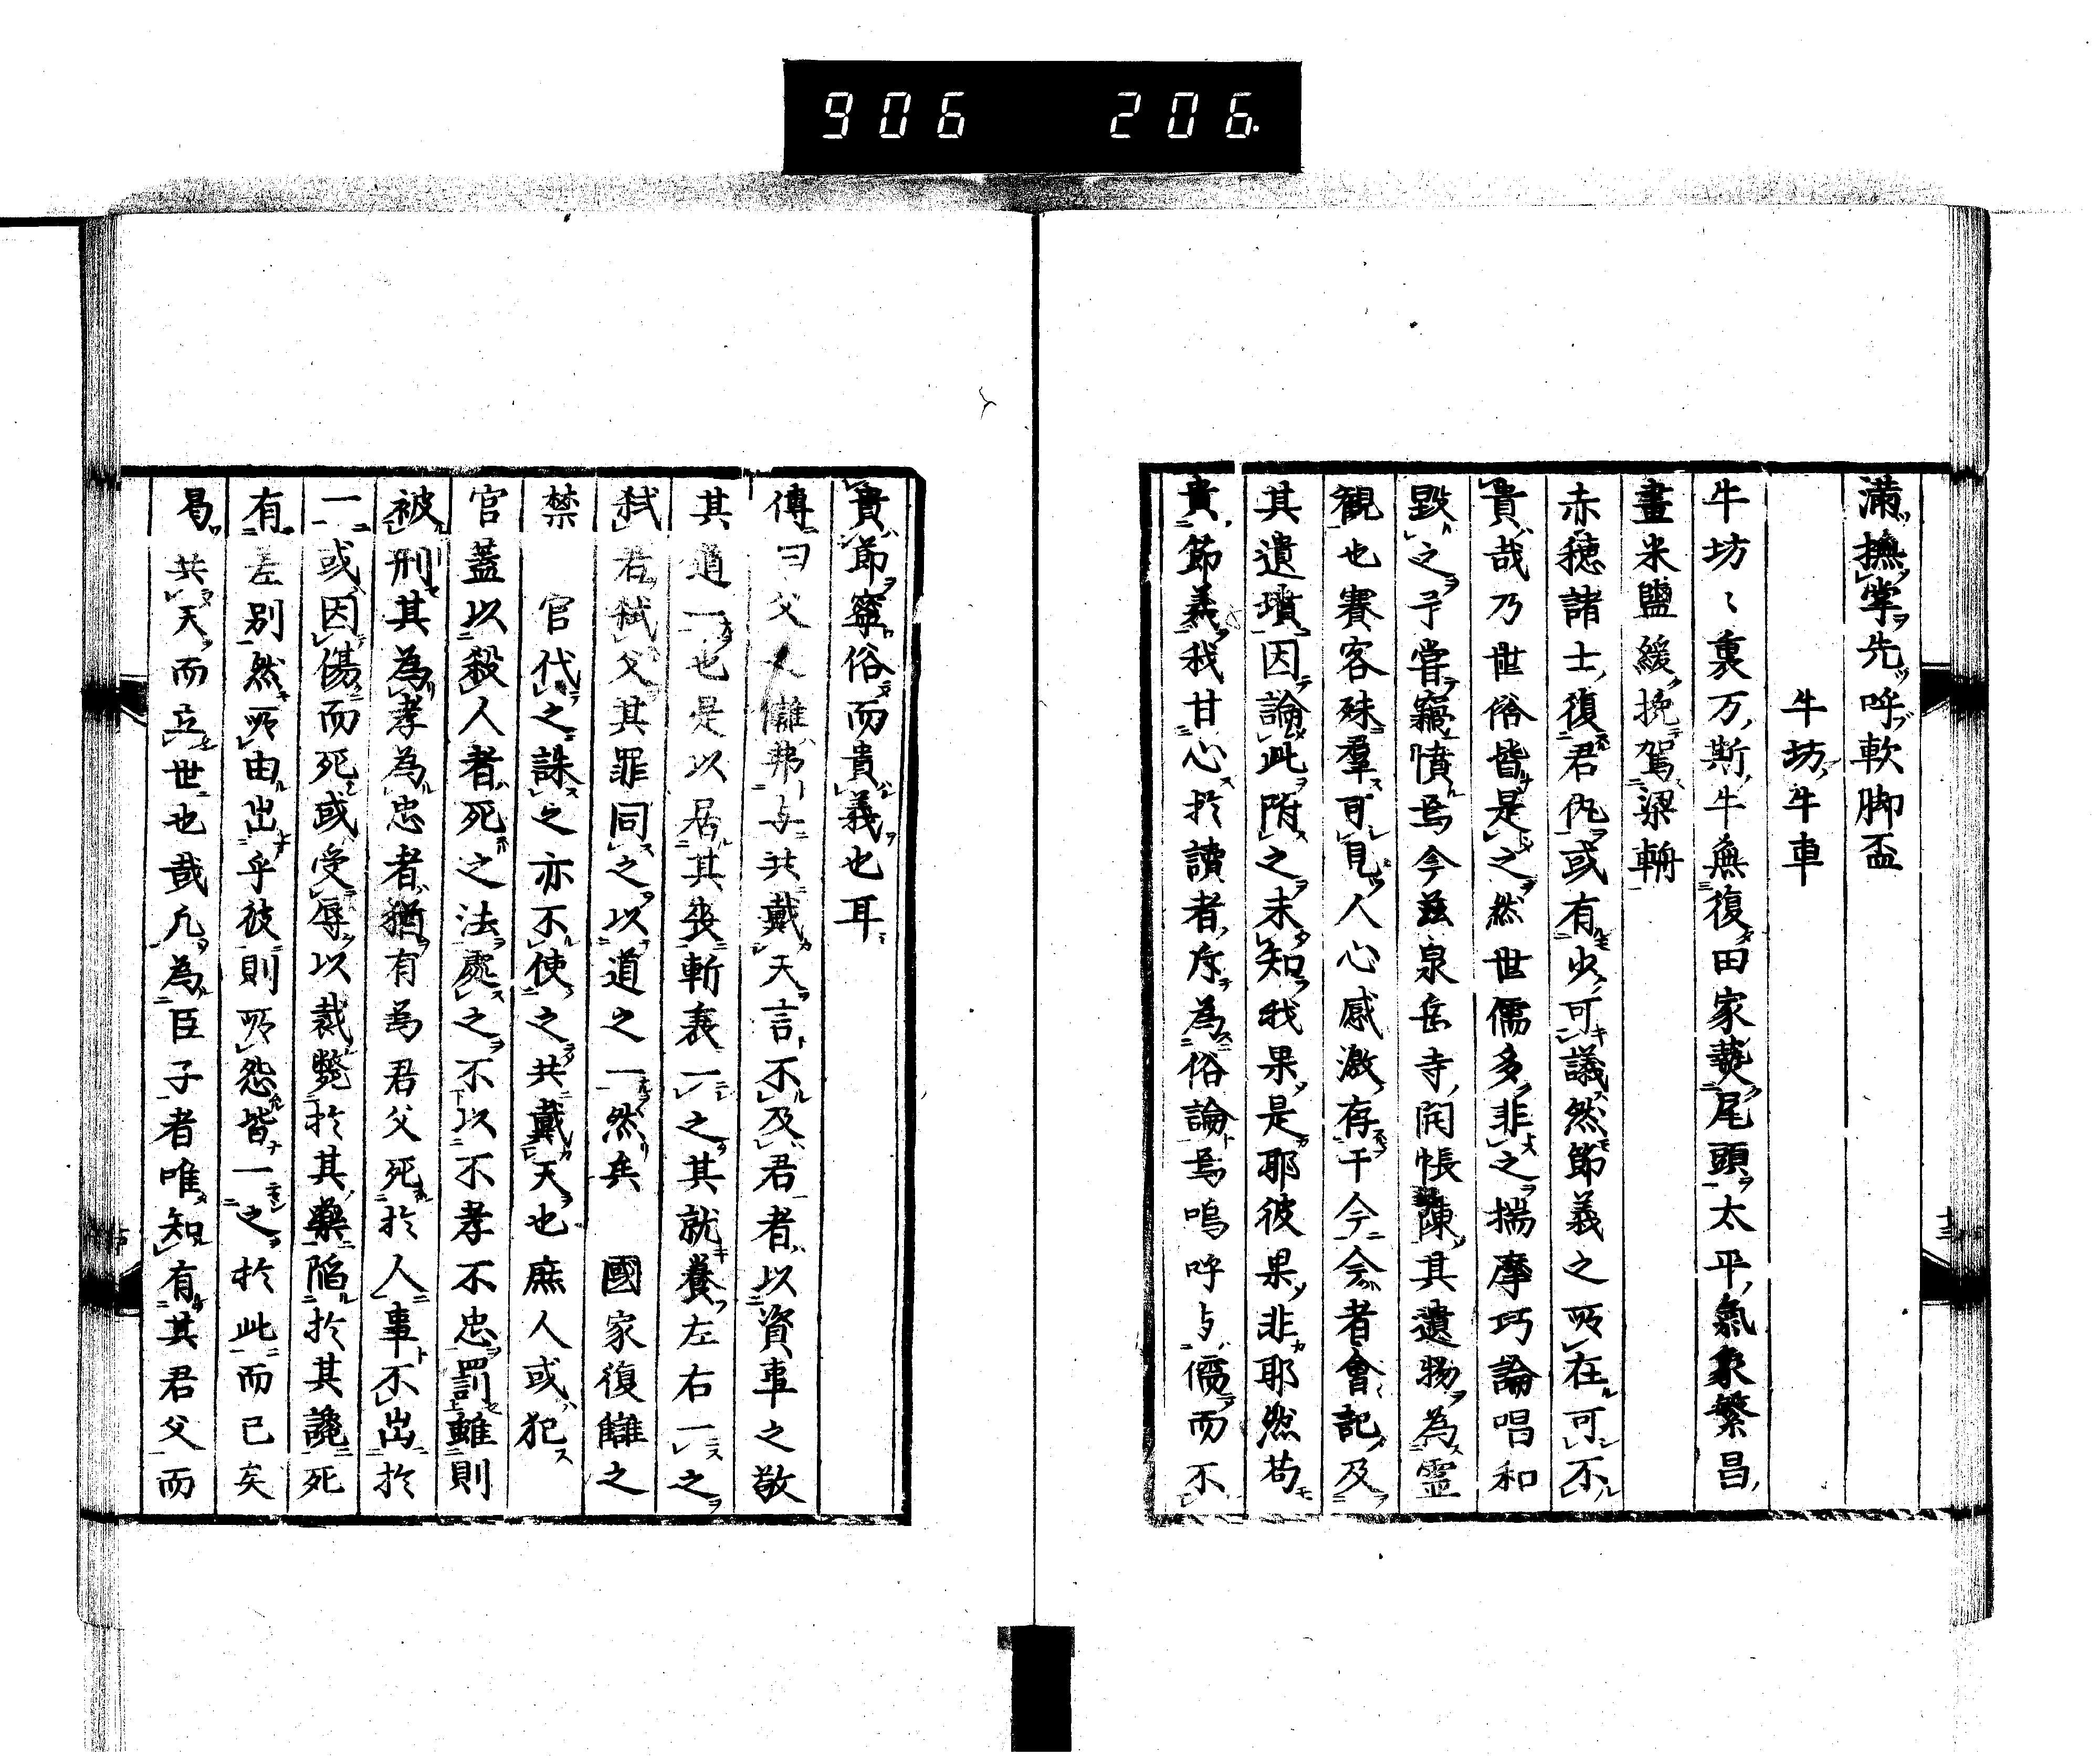 906 206
滿撫掌先呼軟脚盃
牛坊牛車
牛坊〻裏万斯牛無復田家爇尾頭太平氣象繁昌
畫米鹽緩挽駕梁輈
赤穂諸士復君仇或有少可議然節義之所在可不
貴哉乃世俗皆是之然世儒多非之揣摩巧論唱和
毀之予嘗竊憤焉今茲泉岳寺開帳陳其遺物為霊
観也賽客殊羣可見人心感激存于今会者會記及
其遺墳因論此附之未知我果是耶彼果非耶然苟
貴節義我甘心於讀者斥為俗論焉嗚呼与儒而不
貴節寧俗而貴義也耳
傳曰父之讎弗与共戴天言不及君者以資事之敬
其道一也是以居其喪斬衰一之其就養左右一之
弒君弒父其罪同之以道之一然矣 國家復讎之
禁 官代之誅之亦不使之共戴天也庶人或犯
官蓋以殺人者死之法處之不以不孝不忠罰雖則
被刑其為孝為忠者猶有為君父死於人事不出於
一或因傷而死或受辱以裁斃於其藥陷於其讒死
有差別然所由出乎彼則所怨皆一之於此而已矣
曷共天而立世也哉凡為臣子者唯知有其君父而
十三